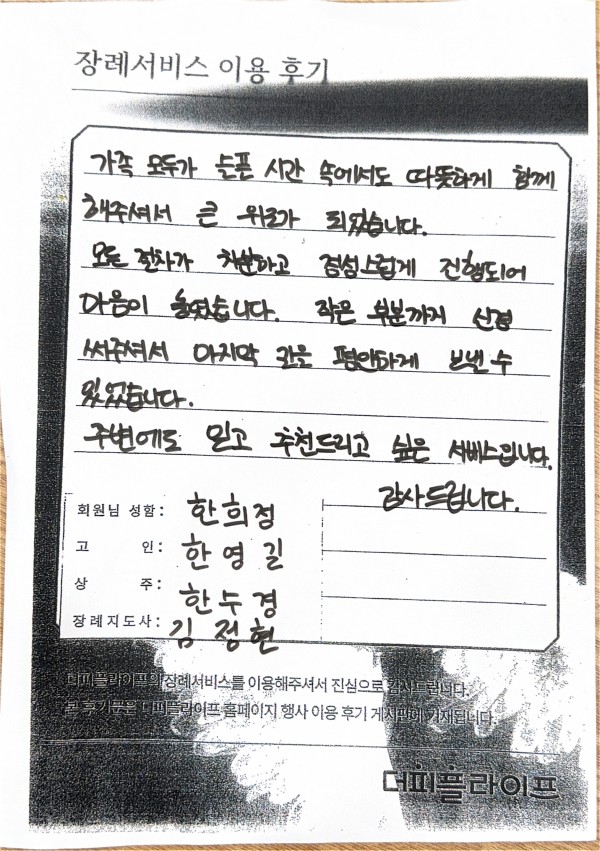 장례서비스 이용 후기
가족 모두가 슬픈 시간 속에서도 따뜻하게 함께
해주셔서 큰 위로가 되었습니다.
모든 절차가 차분하고 정성스럽게 진행되어
마음이 놓였습니다. 작은 부분까지 신경
써주셔서 마지막 길을 평안하게 보낼 수
있었습니다.
주변에도 믿고 추천드리고 싶은 서비스입니다.
감사드립니다.
회원님 성함: 한희정
고 인: 한영길
상 주: 한수경
장례지도사: 김정현
더피플라이프의 장례서비스를 이용해주셔서 진심으로 감사드립니다.
본 후기글은 더피플라이프 홈페이지 행사 이용 후기 게시판에 기재됩니다.
더피플라이프